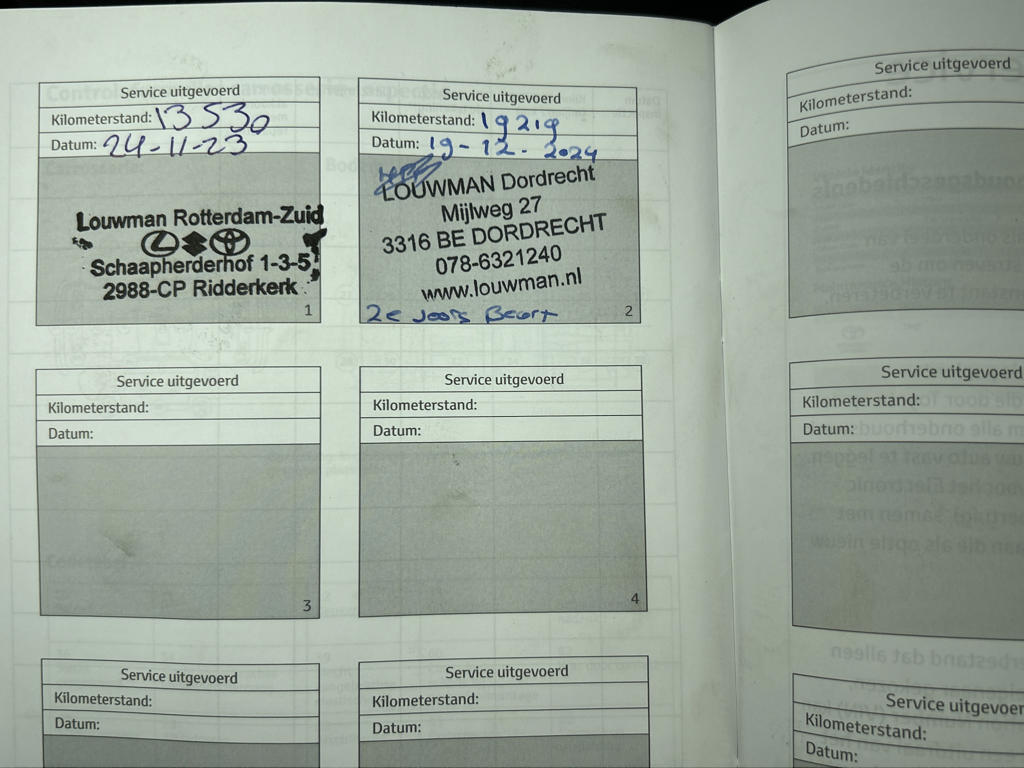 Service uitgevoerd
Kilometerstand: 13530
Datum: 24-11-23
Louwman Rotterdam-Zuid
Schaapherderhof 1-3-5
2988-CP Ridderkerk
1
Service uitgevoerd
Kilometerstand: 19219
Datum: 19-12-2024
LOUWMAN Dordrecht
Mijlweg 27
3316 BE DORDRECHT
078-6321240
www.louwman.nl
2e Jaars Beurt
2
Service uitgevoerd
Kilometerstand:
Datum:
3
Service uitgevoerd
Kilometerstand:
Datum:
4
Service uitgevoerd
Kilometerstand:
Datum:
Service uitgevoerd
Kilometerstand:
Datum:
Service uitgevoerd
Kilometerstand:
Datum:
Service uitgevoerd
Kilometerstand:
Datum:
Service uitgevoerd
Kilometerstand:
Datum: